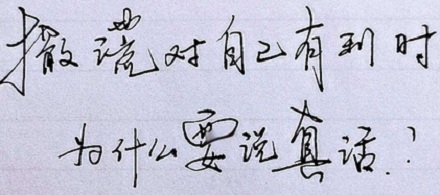 撒谎对自己有利时
为什么要说真话？